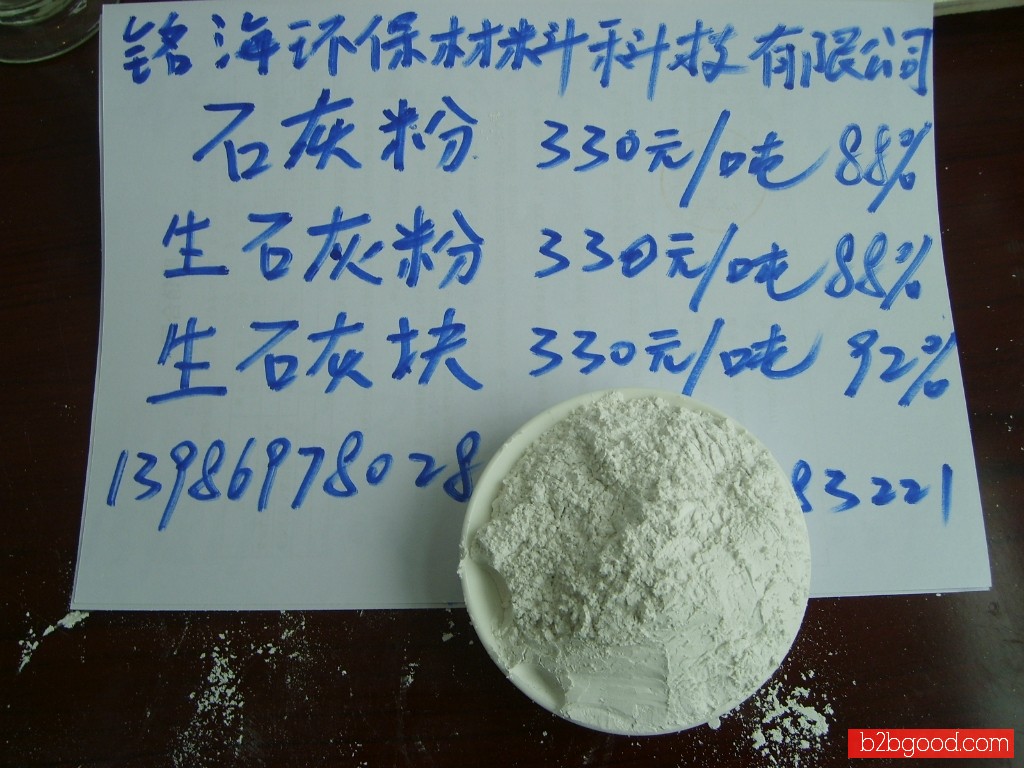 铭海环保材料科技有限公司
石灰粉 330元/吨 88%
生石灰粉 330元/吨 88%
生石灰块 330元/吨 92%
13986978028 83221
b2bgood.com